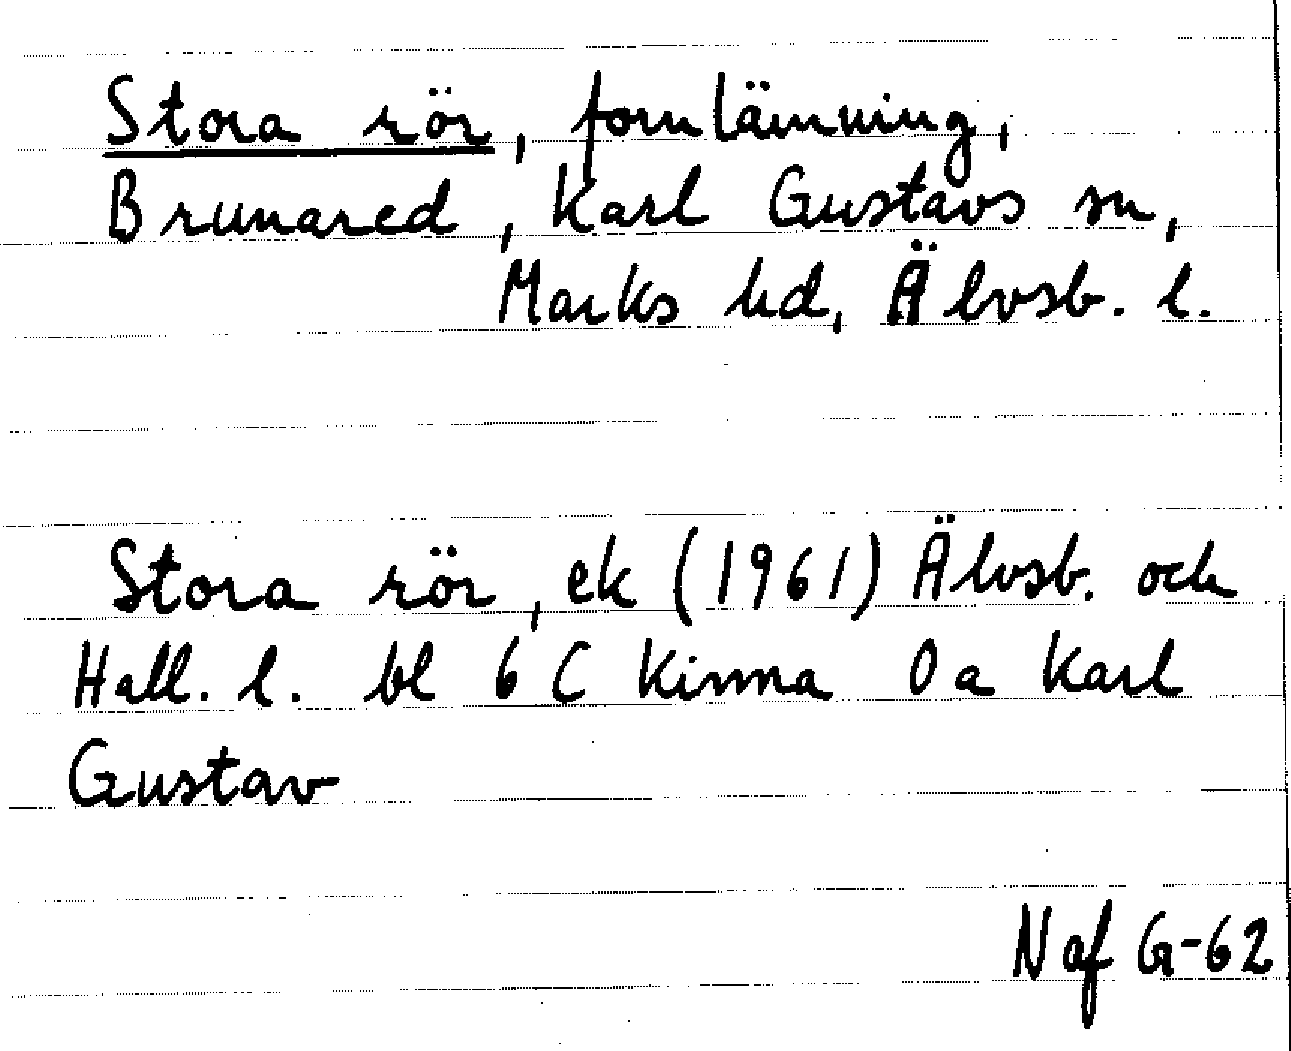 Stora rör, fornlämning,
Brunared, Karl Gustavs sn,
Marks hd, Älvsb. l.
Stora rör, ek (1961) Älvsb. och
Hall. l. bl 6 C Kinna 0a Karl
Gustav
N af G-62